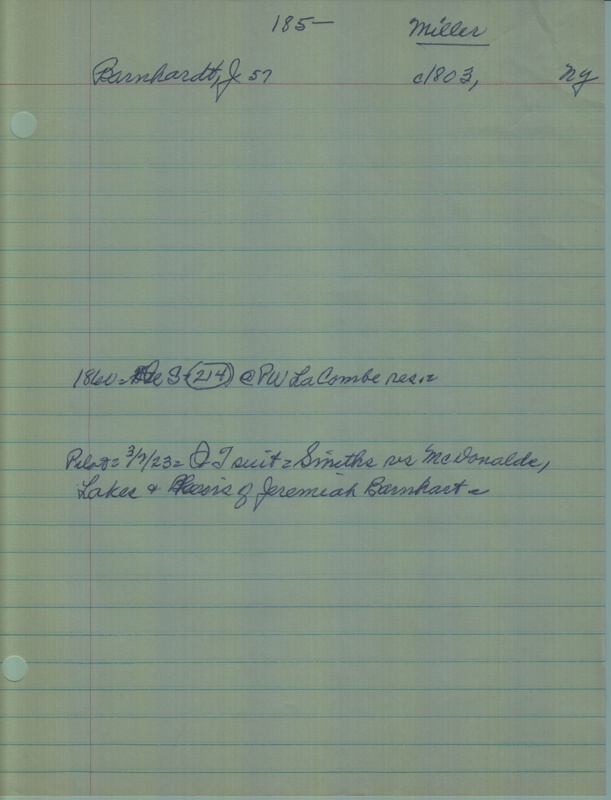 185—
Miller
Barnhardt, J 57 c1803, NY
1860 = S (214) @ PW LaCombe res =
Pilot = 3/7/23 = Q T suit = Smiths vs McDonalds,
Lakes & heirs of Jeremiah Barnhart =